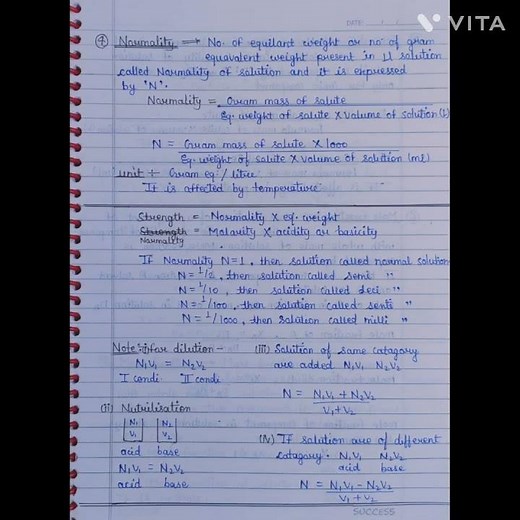 DATE / /
VITA
④ Normality ⟹ No. of equilant weight or no of gram
equavalent weight present in 1l solution
called Normality of solution and it is expressed
by 'N'.
Normality = Gram mass of solute
Eq. weight of solute X volume of solution (l)
N = Gram mass of solute X 1000
Eq. weight of solute X volume of solution (ml)
unit ÷ Gram eq. / litre
It is affected by temperature
Strength = Normality X eq. weight
Strength = Molarity X acidity or basicity
Normality
If Normality N=1, then solution called normal solution
N = 1/2, then solution called semi "
N = 1/10, then solution called deci "
N = 1/100, then solution called senti "
N = 1/1000, then solution called milli "
Note (i) for dilution -
N₁V₁ = N₂V₂
I condi II condi
(ii) Nutrilisation
N₁ N₂
V₁ V₂
acid base
N₁V₁ = N₂V₂
acid base
(iii) Solution of same catagory
are added N₁V₁ N₂V₂
N = N₁V₁ + N₂V₂
V₁+V₂
(iv) If solution are of different
catagory: N₁V₁ N₂V₂
acid base
N = N₁V₁ - N₂V₂
V₁+V₂
SUCCESS